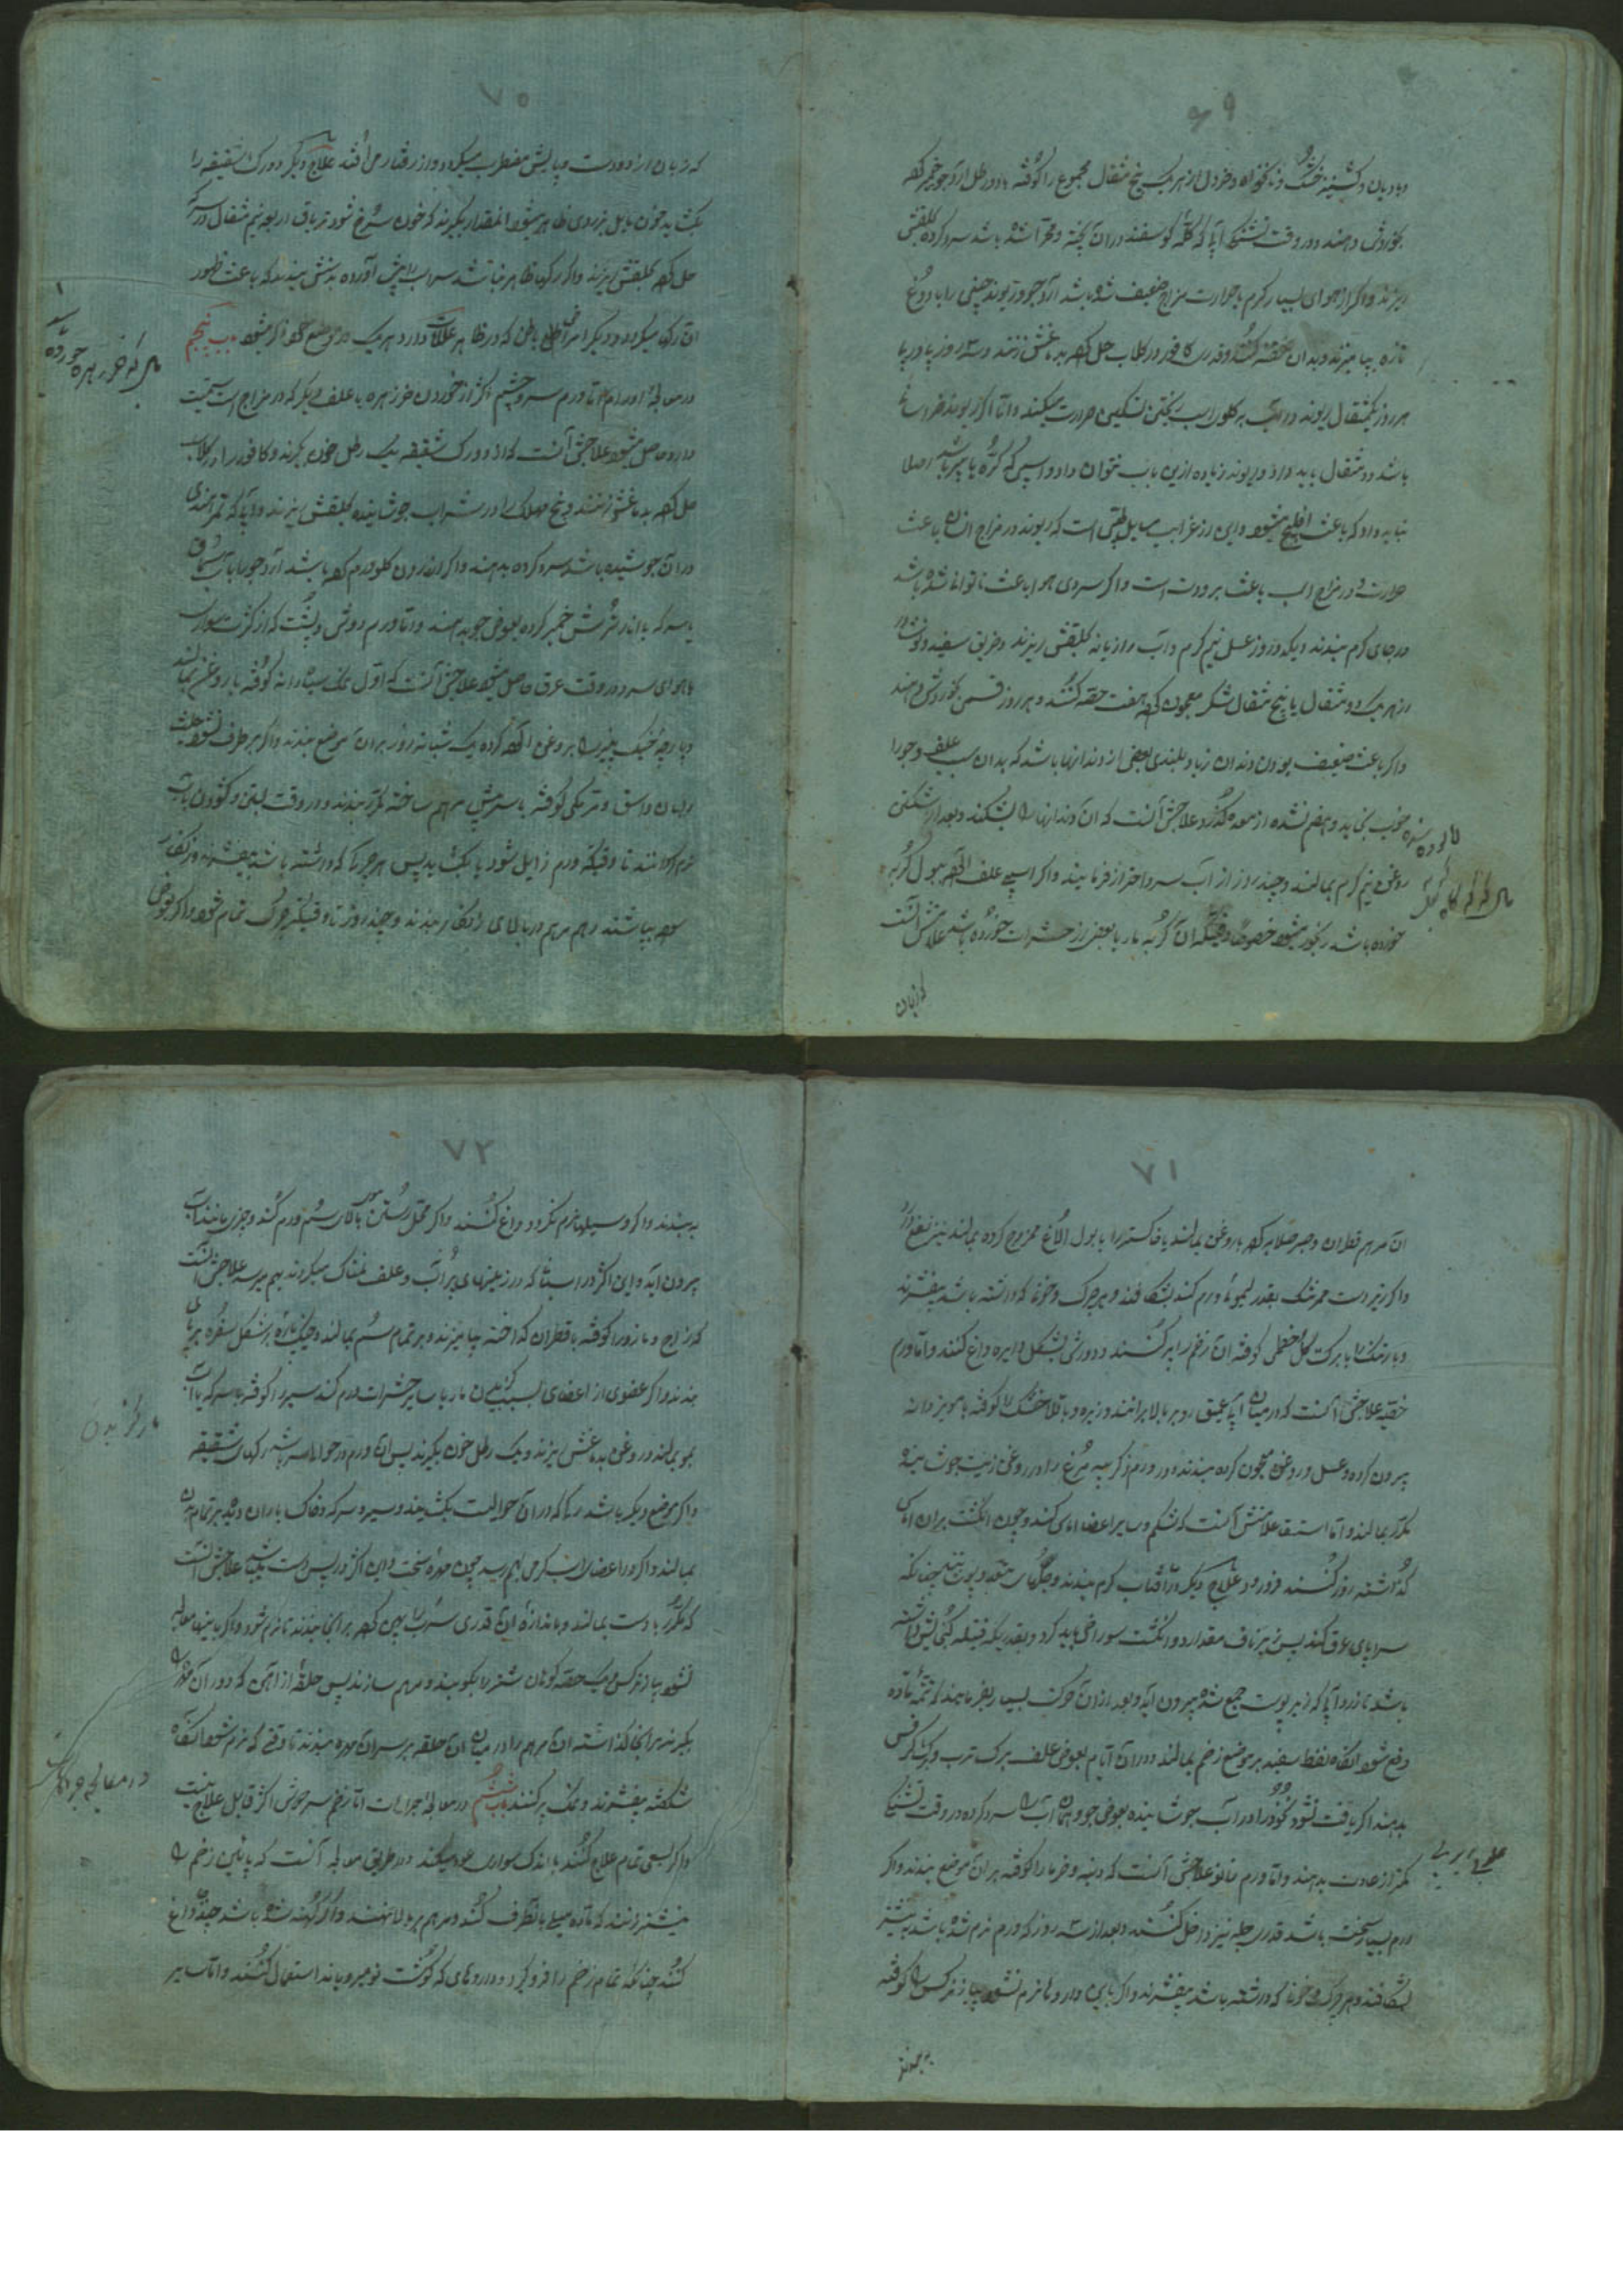 ۶۹
و بادیان و کشنیز خشک و نانخواه و خردل از هر یک پنج مثقال مجموع را کوفته با دو رطل آرد جو خمیر کرده
بخورش دهند و در وقت تشنگی آبی که کلّه گوسفند در آن پخته و مهرّا شده باشد سرد کرده بحلقش
ریزند و اگر از هوای بسیار گرم یا حرارت مزاج ضعیف شده باشد آرد جو و ریوند چینی را با دوغ
تازه بیامیزند و بدان حقنه کنند و قدری کافور در گلاب حل کرده بدماغش زنند و سه روز پیاپی
هر روز یکمثقال ریوند در آب بگلوی اسب ریختن تسکین حرارت میکند و اما اگر ریوند خراسانی
باشد دو مثقال باید داد و ریوند زیاده ازین باسب نتوان داد و اسبی که کرّه یا پیر باشد اصلا
نباید داد که باعث افلیج میشود و این از غرایب مسایل طبی است که ریوند در مزاج انسان باعث
حرارت و در مزاج اسب باعث برودت است و اگر سردی هوا باعث ناتوانی شده باشد
در جای گرم ببندند و یکدو روز عسل نیم گرم و آب رازیانه بحلقش ریزند و خربق سفید و نوشادر
از هر یک دو مثقال با پنج مثقال شکر معجون کرده هفت حقنه کنند و هر روز قسمی بخورش دهند
و اگر باعث ضعیف بودن دندان زیاد و بلندی بعضی از دندانها باشد که بدان سبب علف و جو را
خوب نخاید و هضم نشده از معده بگذرد علاجش آنست که آن دندانها را بشکنند و بعد از شکستن
روغن نیم گرم بمالند و چند روز از آب سرد احتراز فرمایند و اگر اسپی علف آلوده ببول گربه
خورده باشد رنجور میشود خصوصا وقتیکه آن گربه مار یا بعضی از حشرات خورده باشد علامتش آنست
که زبان
۷۰
که زبان از دو دست و پایش مضطرب میگردد و از رفتار می افتد علاج دیگر دو رگ شقیقه را
بگشایند خون مایل بزردی ظاهر میشود آنمقدار بگیرند که خون سرخ شود و تریاق اربعه نیم مثقال در سرکه
حل کرده بحلقش ریزند و اگر رگها ظاهر نباشد سراب را پیش آورده بدنش ببندند که باعث ظهور
آن رگ میگردد و دیگر امراض باطن که در ظاهر علامات دارد هر یک در موضع خود ذکر میشود باب پنجم
در معالجه اورام اما ورم سر و چشم اکثر از خوردن خرزهره یا علف دیگر که در مزاج اسب سمیت
دارد حاصل میشود علاجش آنست که از دو رگ شقیقه یک رطل خون بگیرند و کافور را در گلاب
حل کرده بدماغش زنند و بیخ مهلک را در شراب جوشانیده بحلقش ریزند و آبی که تمر هندی
در آن جوشیده باشد سرد کرده بدهند و اگر اندرون گلو ورم کرده باشد آرد جو را بآب سماق
یا سرکه یا انار ترش خمیر کرده بعوض جو بدهند و اما ورم دوش و پشت که از کثرت سواری
با هوای سرد در وقت عرق حاصل میشود علاجش آنست که اول نمک سیاه دانه کوفته با روغن بمالند
و پارچه خیک پنیر را بروغن آلوده کرده یک شبانه روز بر آن موضع ببندند و اگر برطرف نشود حلبه
و لبان و اشق و مر مکی کوفته با سریش مرهم ساخته مکرر ببندند و در وقت بستن و گشودن بآب
گرم تر کنند تا وقتیکه ورم زایل شود یا بگشاید پس هر چرک که داشته باشد بیفشرند و زنگار
بپاشند و مرهم در بالای زنگار ببندند و چند روز تا وقتیکه چرک تمام شود و اگر بعوض
اسپی که خرزهره خورده
۷۱
آن مرهم قطران و صبر صلایه کرده با روغن بمالند یا خاکستر را با بول الاغ ممزوج کرده بمالند نیز نفع دارد
و اگر زیر دست همرنگ بقدر لیمو ورم کند بشکافند و هر چرک و خون که داشته باشد بیفشرند
و با رنگ یا با برگ گل خطمی کوفته آن زخم را پر کنند و دورش بشکل دایره داغ کنند و اما ورم
خصیه علاجش آنست که در میان آب عمیق رو ببالا برانند و زیره و باقلای خشک را کوفته با مویز دانه
بیرون کرده و عسل و روغن معجون کرده ببندند و در ورم ذکر پیه مرغ را در روغن زیت جوشانیده
مکرر بمالند و اما استسقا علامتش آنست که شکم و سایر اعضا آماس کند و چون انگشت بر آن آماس
گذاشته زور کنند فرو رود علاج دیگر در آفتاب گرم ببندند و جلهای متعدد بپوشانند چنانکه
سراپای عرق کند پس زیر ناف مقدار دو انگشت سوراخی باید کرد و بقدریکه فتیله گنجایش داشته
باشد تا زرد آبی که زیر پوست جمع شده بیرون آید و بعد از آن حرکت بسیار بفرمایند که تتمه ماده
دفع شود آنگاه نفط سفید بر موضع زخم بمالند و در آن ایام بعوض علف برگ ترب و برگ کرفس
بدهند اگر یافت نشود نخود را در آب جوشانیده بعوض جو و همان آب را سرد کرده در وقت تشنگی
کمتر از عادت بدهند و اما ورم زانو علاجش آنست که دنبه و خرما را کوفته بر آن موضع ببندند و اگر
ورم بسیار سخت باشد قدری حلبه نیز داخل کنند و بعد از سه روز که ورم نرم شده باشد به نیشتر
بشکافند و هر چرک و خون که داشته باشد بیفشرند و اگر باین دارو نرم نشود پیاز نرگس را کوفته
ببندند
۷۲
ببندند و اگر وسیلها نرم نگردد داغ کنند و اگر محل رستن موی بالای سم ورم کند و چیزی مانند آب
بیرون آید و این اکثر در اسبها که در زمینهای پر آب و علف نمناک میگردند بهم میرسد علاجش آنست
که زاج و مازو را کوفته با قطران گداخته بیامیزند و بر تمام سم بمالند
بندند و اگر عضوی از اعضای اسب بسبب گزیدن مار یا سایر حشرات ورم کند سیر را کوفته با سرکه یا آب
بمالند و روغن بدماغش ریزند و یک رطل خون بگیرند پس اگر ورم در حوالی سر باشد رگهای شقیقه
و اگر موضع دیگر باشد رگی که در آن حوالیست بگشایند و سیر و سرکه و خاک باران دیده بر تمام بدن
بمالند و اگر در اعضای اسب گرهی بهم رسد چون مهره سخت و این اکثر در پس دست میباشد علاجش آنست
که مکرر با دست بمالند و باندازه آن قدری سرب را پهن کرده بر آنجا ببندند تا نرم شود و اگر باینها معالجه
نشود پیاز نرگس و یک حقه کوهان شتر را بکوبند و مرهم سازند پس حلقه از آهن که دور آن مهره را
بگیرد بر آنجا گذاشته آن مرهم را در میان آن حلقه بر سر آن مهره ببندند تا وقتی که نرم شود آنگاه
شکفته بیفشرند و نمک پر کنند باب ششم در معالجه جراحات اما زخم سر دوش اکثر قابل علاج نیست
و اگر بسعی تمام علاج کنند باندک سواری عود میکند و در طریق معالجه آنست که پائین زخم را
نیشتر زنند که ماده میل بآنطرف کند و مرهم بر بالا نهند و اگر کهنه شده باشد چند داغ
کنند چنانکه تمام زخم را فرو گیرد و داروهای که گوشت نو میرویاند استعمال کنند و اما تدبیر
مار گزیدن
در معالجه جراحات